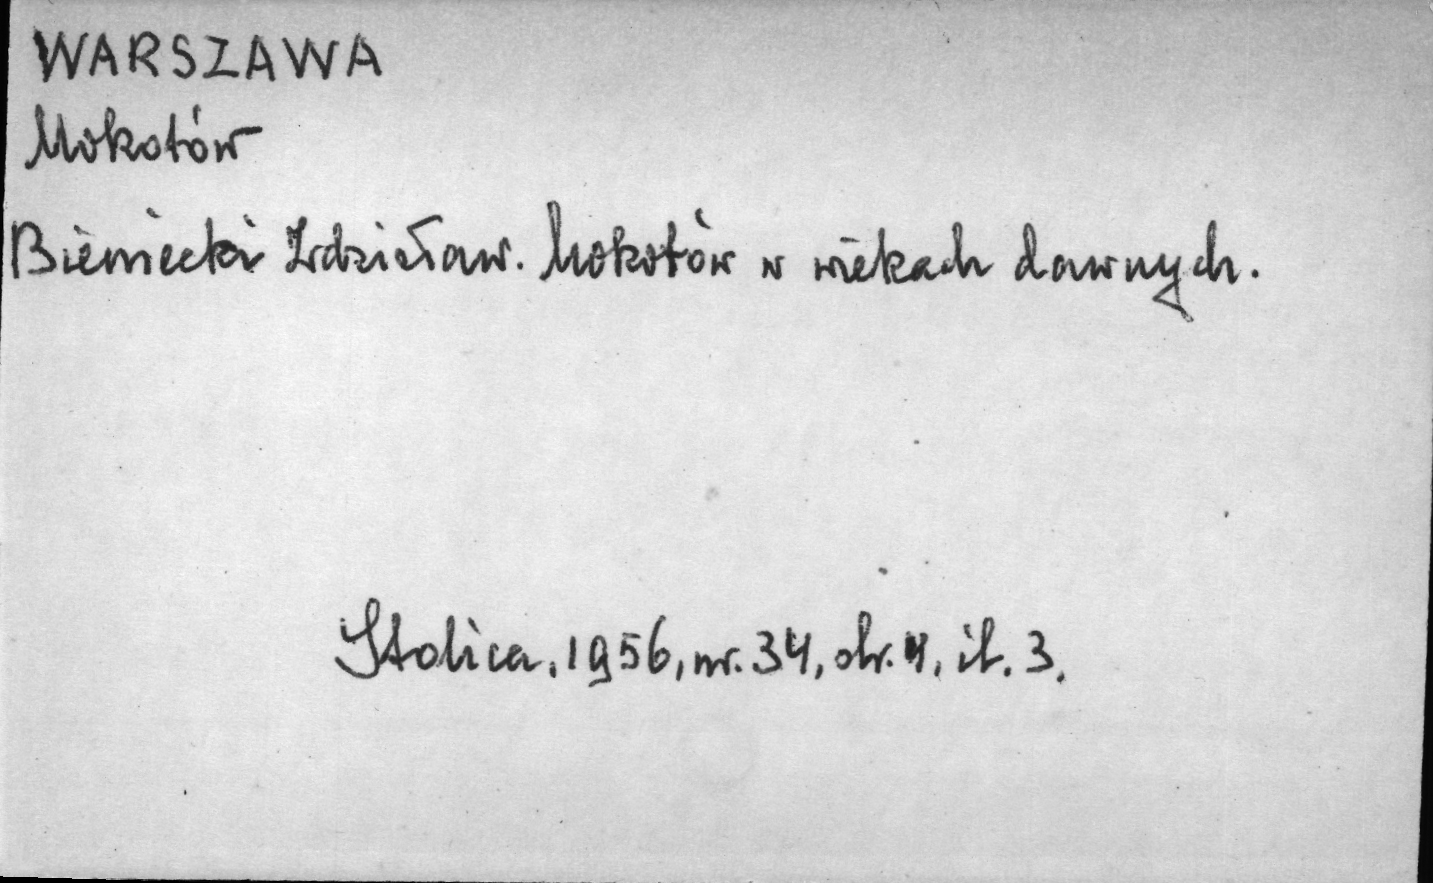 WARSZAWA
Mokotów
Bieniecki Zdzisław. Mokotów w wiekach dawnych.
Stolica, 1956, nr. 34, str. 4, il. 3.